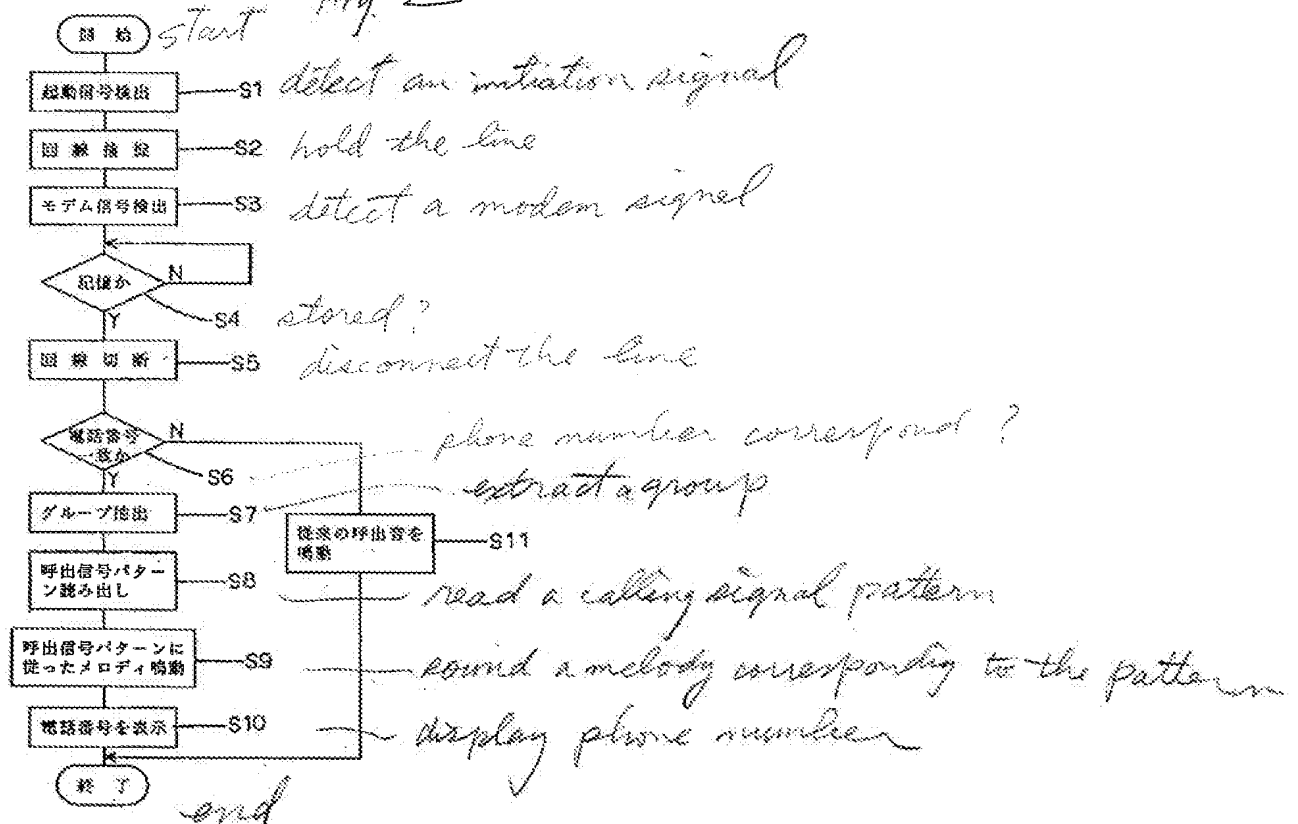 Fig. 2
開始 start
起動信号検出 S1 detect an initiation signal
回線接続 S2 hold the line
モデム信号検出 S3 detect a modem signal
記憶か N
Y S4 stored?
回線切断 S5 disconnect the line
電話番号 N phone number correspond?
一致か
Y S6
グループ抽出 S7 extract a group
従来の呼出音を S11
鳴動
呼出信号パター S8 read a calling signal pattern
ン読み出し
呼出信号パターンに S9 sound a melody correspondig to the pattern
従ったメロディ鳴動
電話番号を表示 S10 display phone number
終了
end